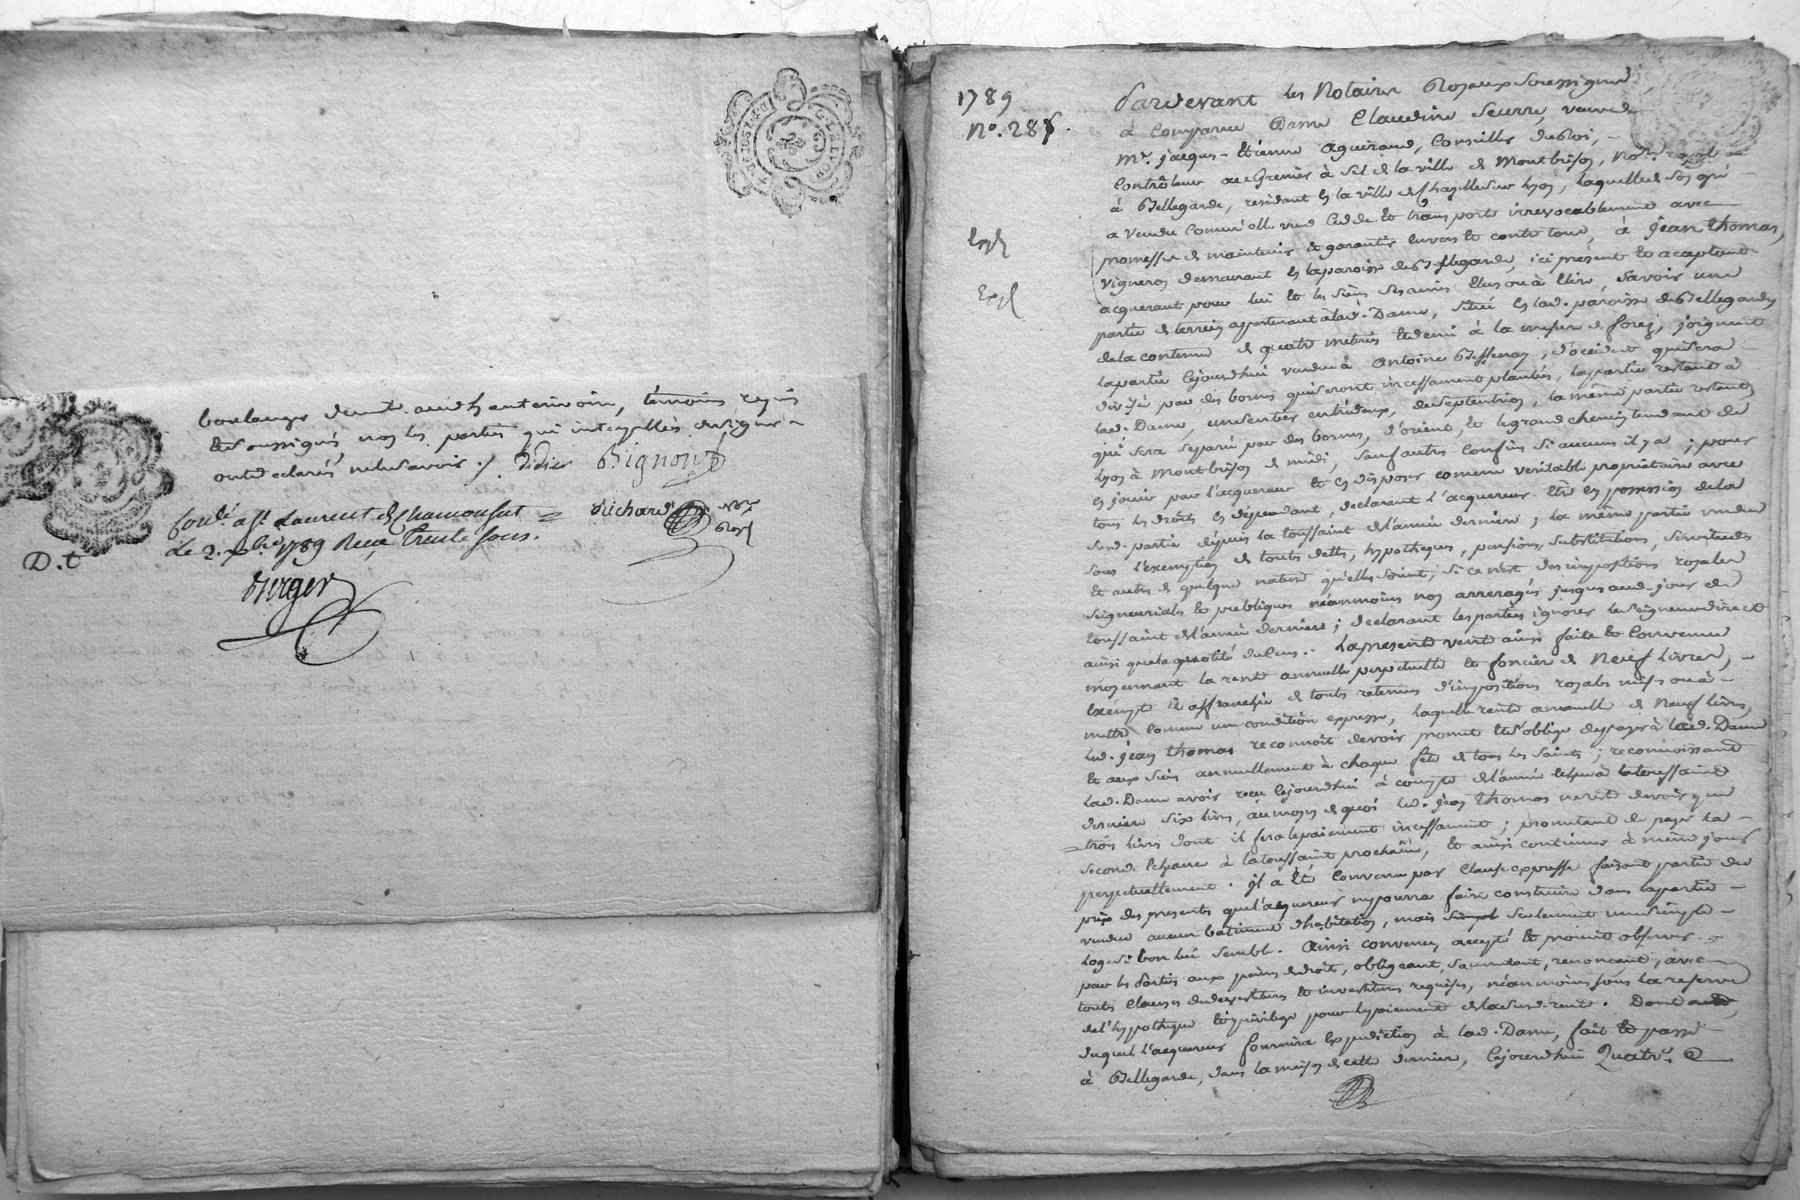 boulanger demt. aud. hauterivoire, témoins requis
et soussignés non les parties qui interpellées de signer
ont declarés ne le savoir ./ Didier Bignon
Richard Nre. Royl
Conlé. a St. Laurent de Chamousset =
Le 2. xbre 1789 Reçu Trente Sous.
D.t
Berger
1789
No. 28
Expl
Expl
Pardevant les Notaires Royaux soussignés
a comparue Dame Claudine Seurre, veuve de
Mr. jacques-Etienne Aguiraud, Conseiller du Roi,
Contrôleur au Grenier à Sel de la ville de Montbrison, Nore. royal
à Bellegarde, residant en la ville de Chazelle sur Lyon, laquelle de son gré
a vendu comm'elle vend cede et transporte irrevocablement avec
promesse de maintenir et garantir envers et contre tous, à jean thomas,
vigneron demeurant en la paroisse de Bellegarde, ici present et acceptant
acquerant pour lui et les siens ses amis elus ou à elire, savoir une
partie de terrein appartenant à lad. Dame, située en lad. paroisse de Bellegarde,
de la contenue de quatre metrées et demi à la mesure de forez, joignant
la partie cejourd'hui vendue à Antoine Bessenay, d'occident qui sera
divisée par des bornes qui seront incessamment plantées, la partie restant à
lad. Dame, un sentier entre deux, de septentrion, la même partie restante
qui sera separée par des bornes, d'orient, et le grand chemin tendant de
Lyon à Montbrison de midi, sauf autres confins si aucuns il y a ; pour
en jouir par l'acquereur et en disposer comme veritable proprietaire avec
tous les droits en dependant, declarant l'acquereur être en possession de la
susd. partie depuis la toussaint de l'année derniere ; la même partie vendue
sous l'exemption de toutes dettes, hypotheques, pensions, substitutions, servitudes
et autres de quelque nature qu'elles soient, si ce n'est des impositions royales
seigneuriales et publiques néanmoins non arreragés jusques aud. jour de
toussaint de l'année derniere ; declarant les parties ignorer le seigneur direct
ainsi que la quotité du cens. La presente vente ainsi faite et convenue
moyennant la rente annuelle perpetuelle et fonciere de Neuf Livres,
exempte et affranchie de toutes retenues d'impositions royales mises ou à
mettre comme une condition expresse, laquelle rente annuelle de Neuf livres,
led. jean thomas reconnoit devoir promet et s'oblige de payer à lad. Dame
et aux siens annuellement à chaque fête de tous les Saints ; reconnoissant
lad. Dame avoir reçu cejourd'hui à compte de l'année echue à la toussaint
derniere six livres, au moyen de quoi led. jean thomas ne reste devoir que
trois livres dont il fera le paiement incessament ; promettant de payer la
seconde echeance à la toussaint prochaine, et ainsi continuer à même jour
perpetuellement. il a été convenu par clause expresse faisant partie du
prix des presentes que l'acquereur ne pourra faire construire dans la partie
vendue aucun batiment d'habitation, mais seulement une simple
loge si bon lui semble. Ainsi convenu, accepté et promit observer
par les Parties aux peines de droit, obligeant, soumettant, renonçant, avec
toutes clauses de devestitures et investitures requises, néanmoins sous la reserve
de l'hypotheque et privilege pour le paiement de la susd. rente. Dont
duquel l'acquereur fournira expedition à lad. Dame, fait et passé
à Bellegarde, dans la maison de cette derniere, cejourd'hui Quatre